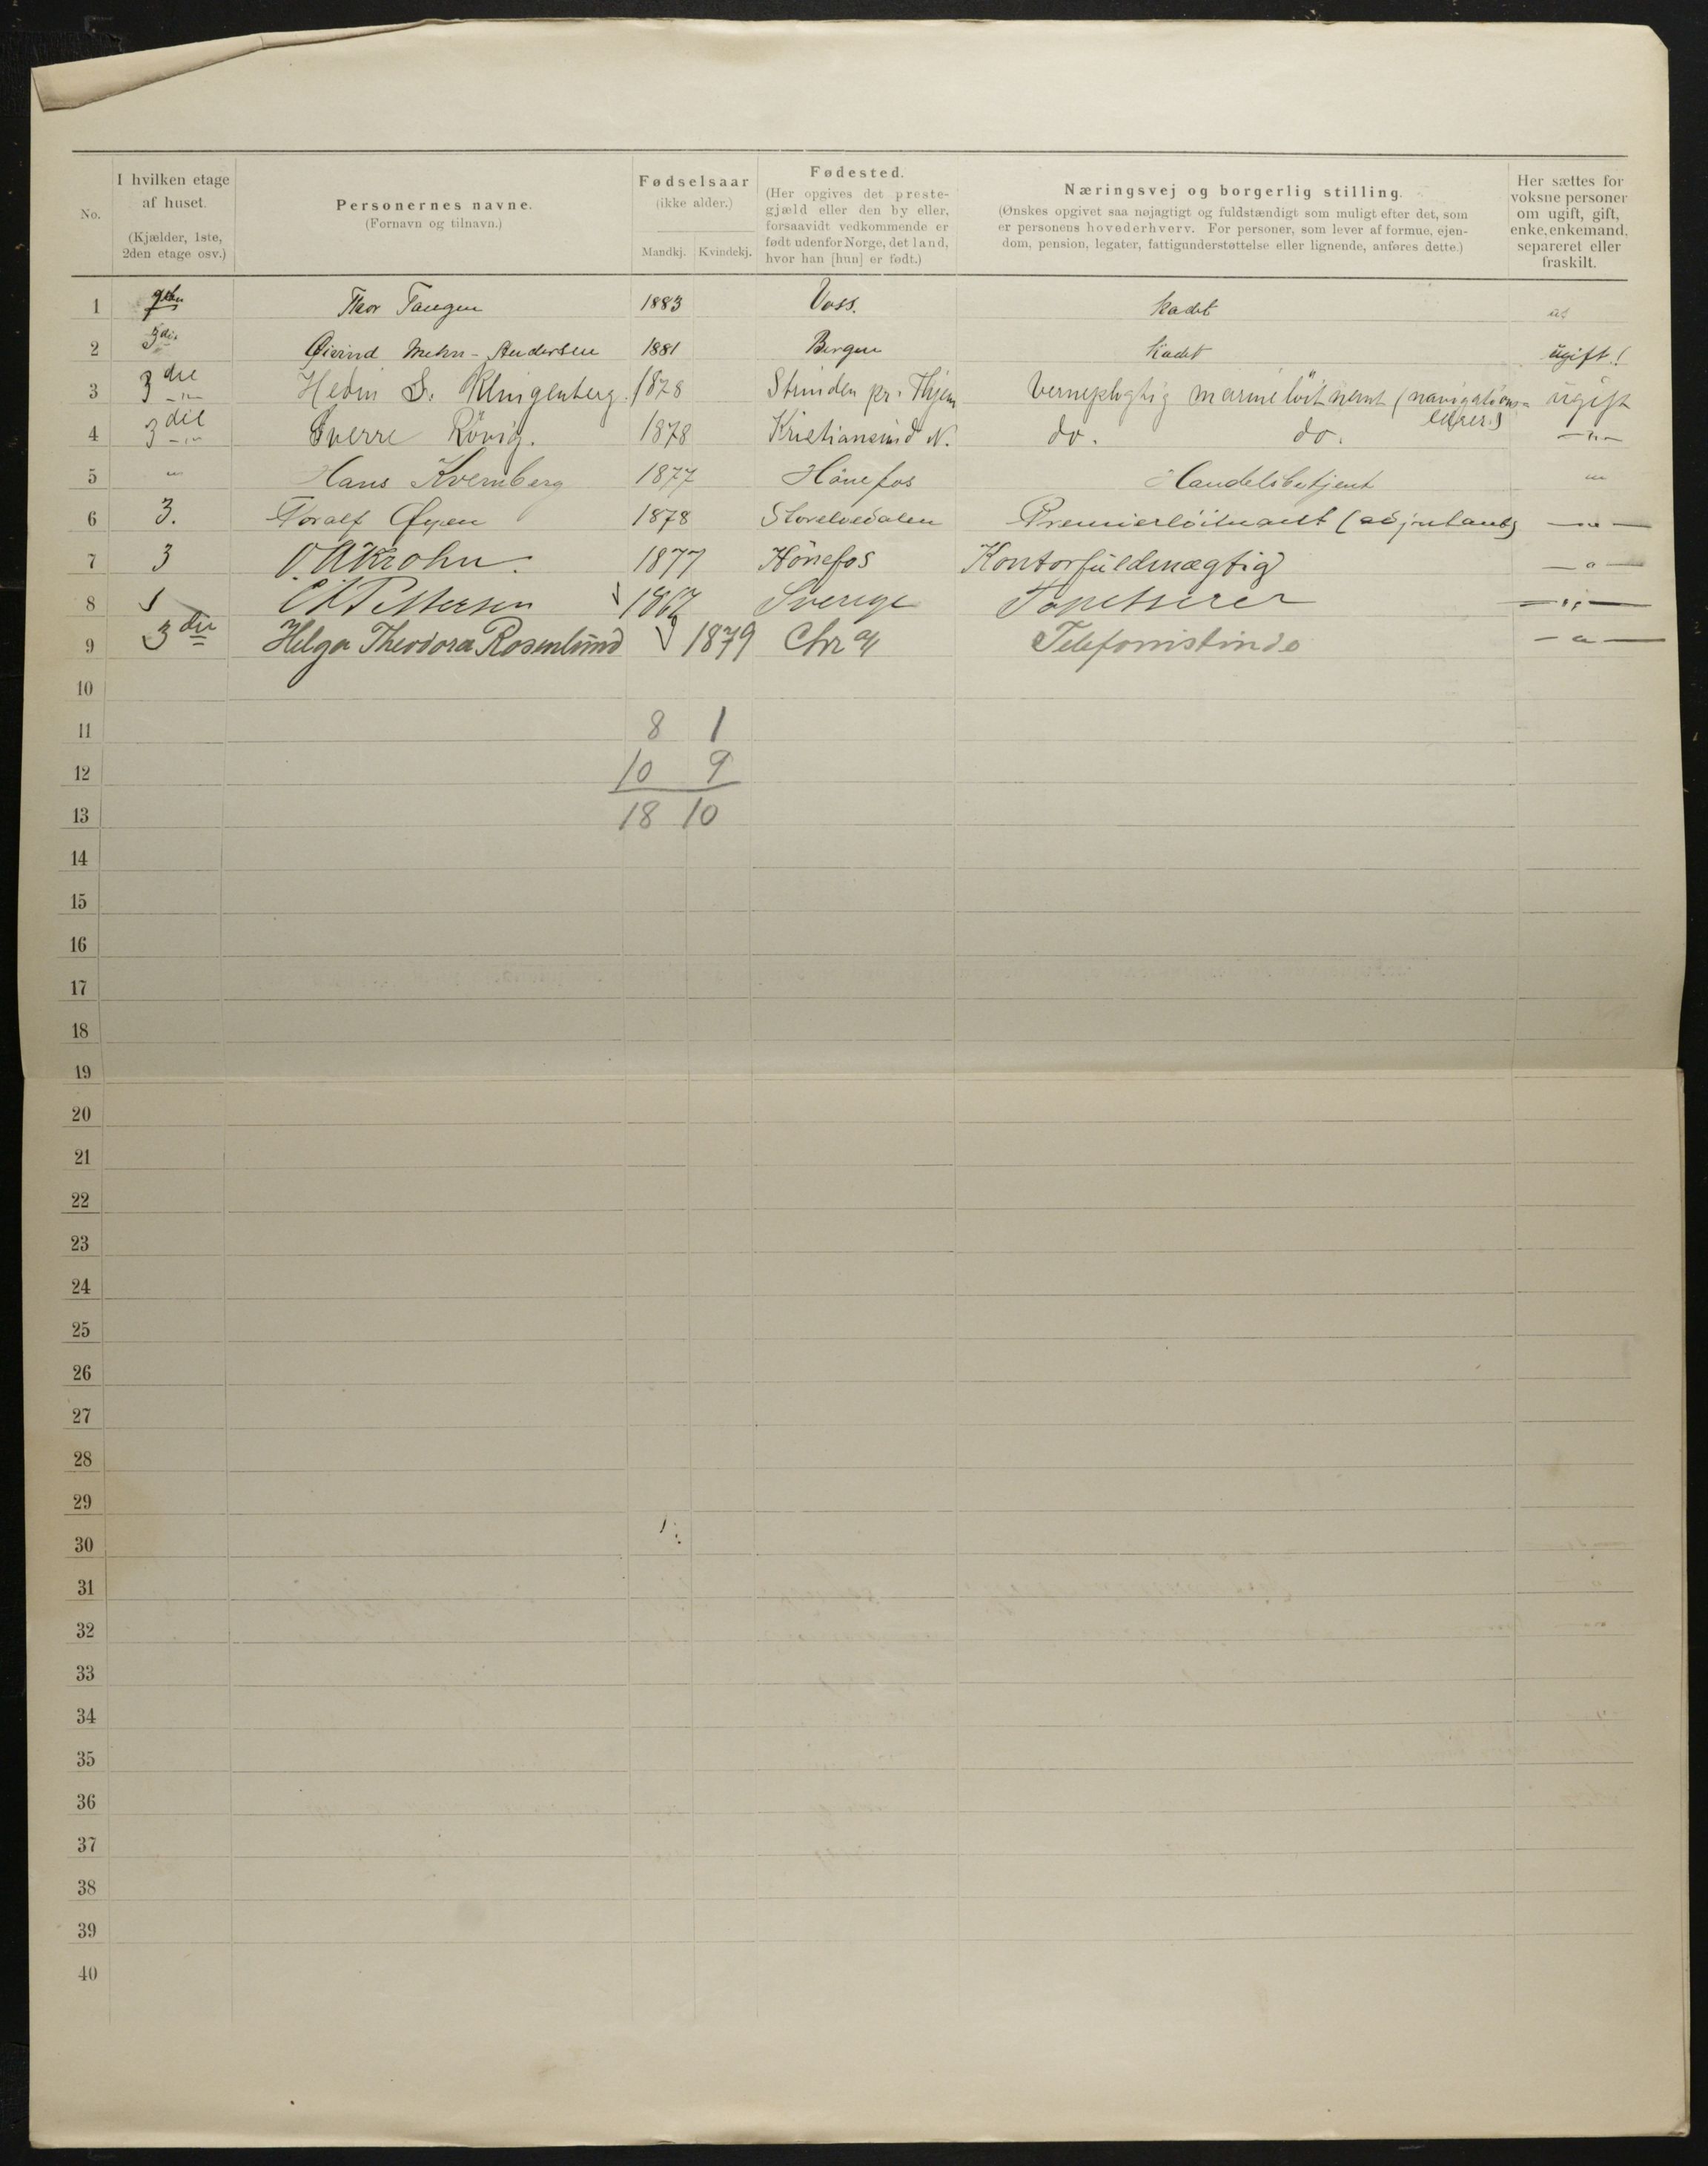 No.
I hvilken etage
af huset.
(Kjælder, 1ste,
2den etage osv.)
Personernes navne.
(Fornavn og tilnavn.)
Fødselsaar
(ikke alder.)
Mandkj. Kvindekj.
Fødested.
(Her opgives det preste-
gjæld eller den by eller,
forsaavidt vedkommende er
født udenfor Norge, det land,
hvor han [hun] er født.)
Næringsvej og borgerlig stilling.
(Ønskes opgivet saa nøjagtigt og fuldstændigt som muligt efter det, som
er personens hovederhverv. For personer, som lever af formue, ejen-
dom, pension, legater, fattigunderstøttelse eller lignende, anføres dette.)
Her sættes for
voksne personer
om ugift, gift,
enke, enkemand,
separeret eller
fraskilt.
1 Thor Tangen 1883 Voss. Kadet
2 3die Øivind Mehn-Andersen 1881 Bergen Kadet ugift!
3 3die Hedin S. Klingenberg. 1878 Strinden pr. Thjem Vernepligtig marineløitnant (navigations- ugift
lærer.)
4 3die Sverre Rövig. 1878 Kristiansund N. do. do. —"—
5 " Hans Kvernberg 1877 Hönefos Handelsbetjent "
6 3. Toralf Øyen 1878 Storelvedalen Premierlöitnant (adjutant) —"—
7 3 O. A. Krohn. 1877 Hönefos Kontorfuldmægtig —"—
8 Pettersen 1867 Sverige Tapetserer —"—
9 3die Helga Theodora Rosenlund 1879 Chr a/ Telefonistinde —"—
10
11 8 1
12 10 9
13 18 10
14
15
16
17
18
19
20
21
22
23
24
25
26
27
28
29
30
31
32
33
34
35
36
37
38
39
40